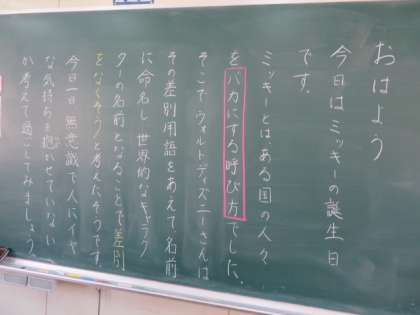 おはよう
今日はミッキーの誕生日
です。
ミッキーとは、ある国の人々
をバカにする呼び方でした。
そこでウォルトディズニーさんは
その差別用語をあえて名前
に命名し、世界的なキャラク
ターの名前となることで差別
をなくそうと考えたそうです。
今日一日無意識で人にイヤ
な気持ちを抱かせていない
か考えて過ごしてみましょう。